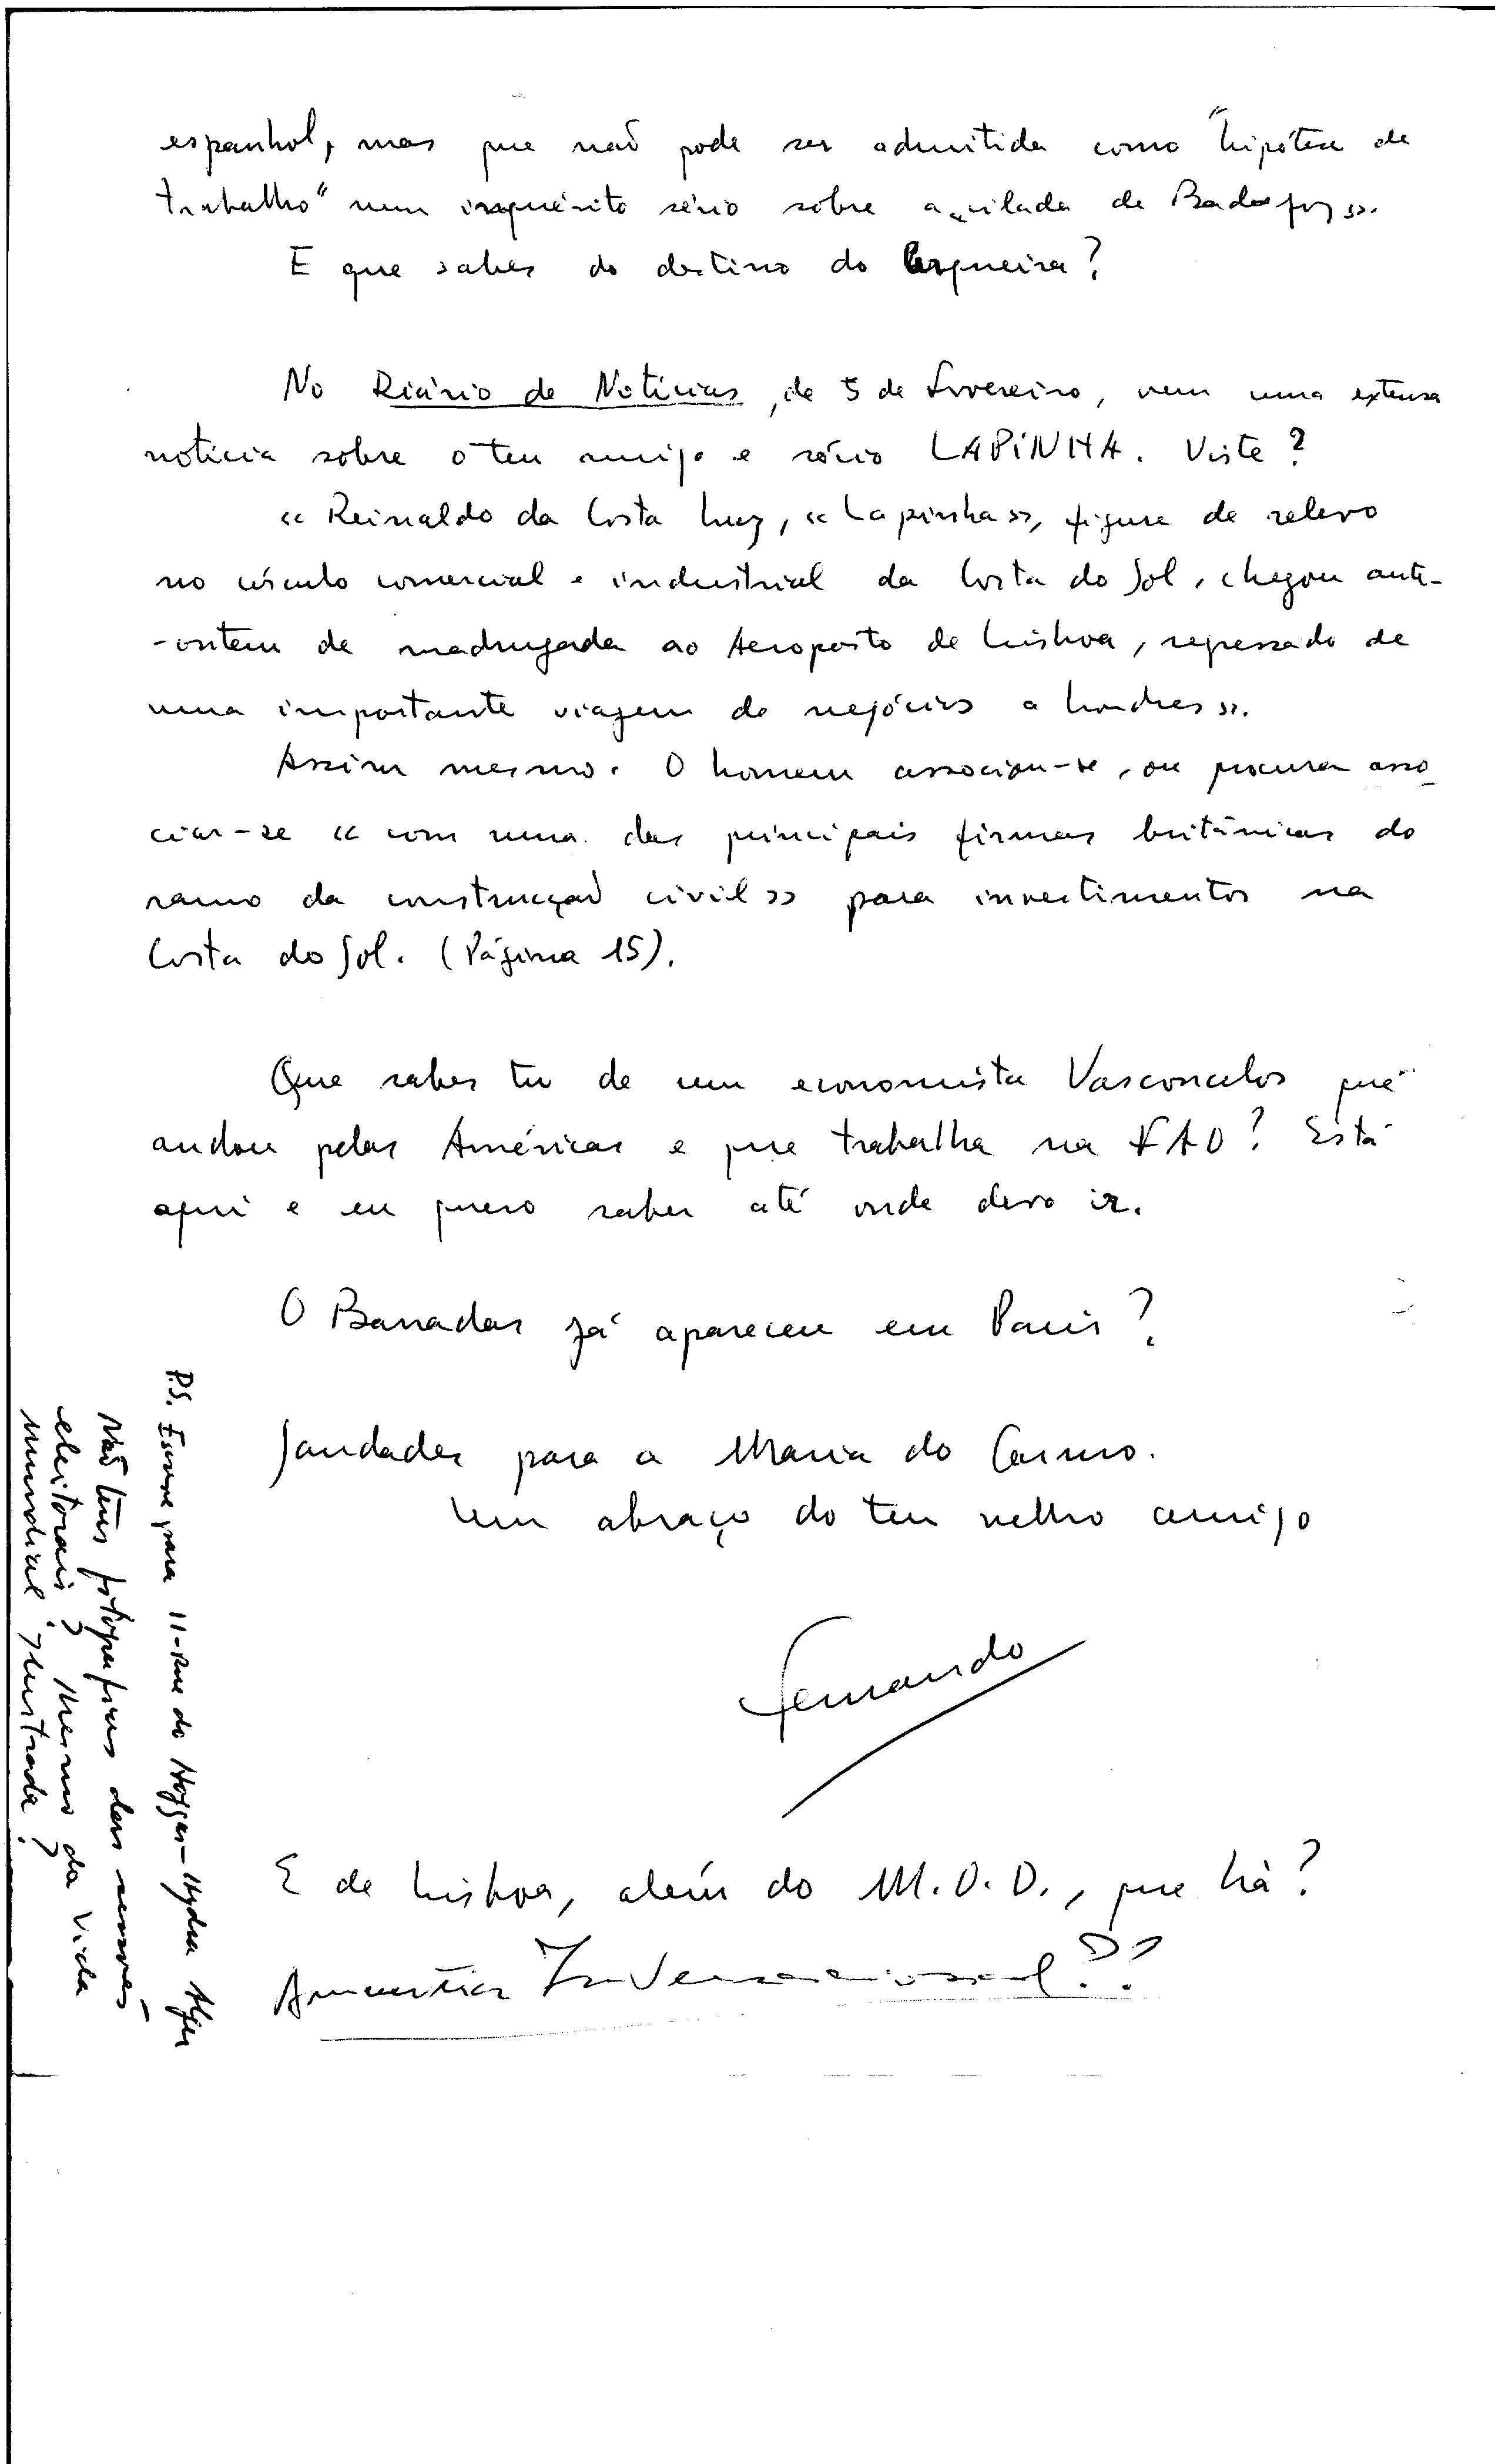 espanhol, mas que não pode ser admitida como "hipótese de
trabalho" num inquérito sério sobre a cilada de Badajoz».
E que sabes do destino do Cerqueira?
No Diário de Notícias, de 5 de Fevereiro, vem uma extensa
notícia sobre o teu amigo e sócio LAPINHA. Viste?
« Reinaldo da Costa Luz, «Lapinha», figura de relevo
no círculo comercial e industrial da Costa do Sol, chegou ante-
-ontem de madrugada ao Aeroporto de Lisboa, regressado de
uma importante viagem de negócios a Londres».
Assim mesmo. O homem associou-se, ou procura asso-
ciar-se « com uma das principais firmas britânicas do
ramo da construcção civil» para investimentos na
Costa do Sol. (Página 15).
Que sabes tu de um economista Vasconcelos que
andou pelas Américas e que trabalha na FAO? Está
aqui e eu quero saber até onde devo ir.
O Barradas já apareceu em Paris?
Saudades para a Maria do Carmo.
Um abraço do teu velho amigo
Fernando
E de Lisboa, além do M.O.D., que há?
Amnistia Internacional??
P.S. Escreve para 11-Rue do Hoggar-Hydra Alger
Não tens fotografias das sessões
eleitorais? Mesmo da vida
mundial ilustrada?